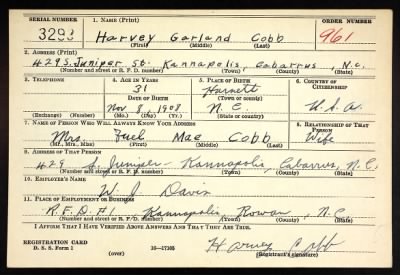 SERIAL NUMBER 1. NAME (Print) ORDER NUMBER
3293 Harvey Garland Cobb 961
(First) (Middle) (Last)
2. ADDRESS (Print)
429 S. Juniper St. Kannapolis, Cabarrus, N.C.
(Number and street or R. F. D. number) (Town) (County) (State)
3. TELEPHONE 4. AGE IN YEARS 5. PLACE OF BIRTH 6. COUNTRY OF CITIZENSHIP
31 Harnett
DATE OF BIRTH (Town or county)
Nov 8, 1908 N.C. U.S.A.
(Exchange) (Number) (Mo.) (Day) (Yr.) (State or country)
7. NAME OF PERSON WHO WILL ALWAYS KNOW YOUR ADDRESS 8. RELATIONSHIP OF THAT PERSON
Mrs. Mae Cobb Wife
(Mr., Mrs., Miss) (First) (Middle) (Last)
9. ADDRESS OF THAT PERSON
429 S. Juniper Kannapolis, Cabarrus, N.C.
(Number and street or R. F. D. number) (Town) (County) (State)
10. EMPLOYER'S NAME
W. J. Davis
11. PLACE OF EMPLOYMENT OR BUSINESS
R.F.D. #1 Kannapolis Rowan, N.C.
(Number and street or R. F. D. number) (Town) (County) (State)
I AFFIRM THAT I HAVE VERIFIED ABOVE ANSWERS AND THAT THEY ARE TRUE.
REGISTRATION CARD
D. S. S. Form 1 (over) 16—17105 Harvey Cobb
(Registrant's signature)